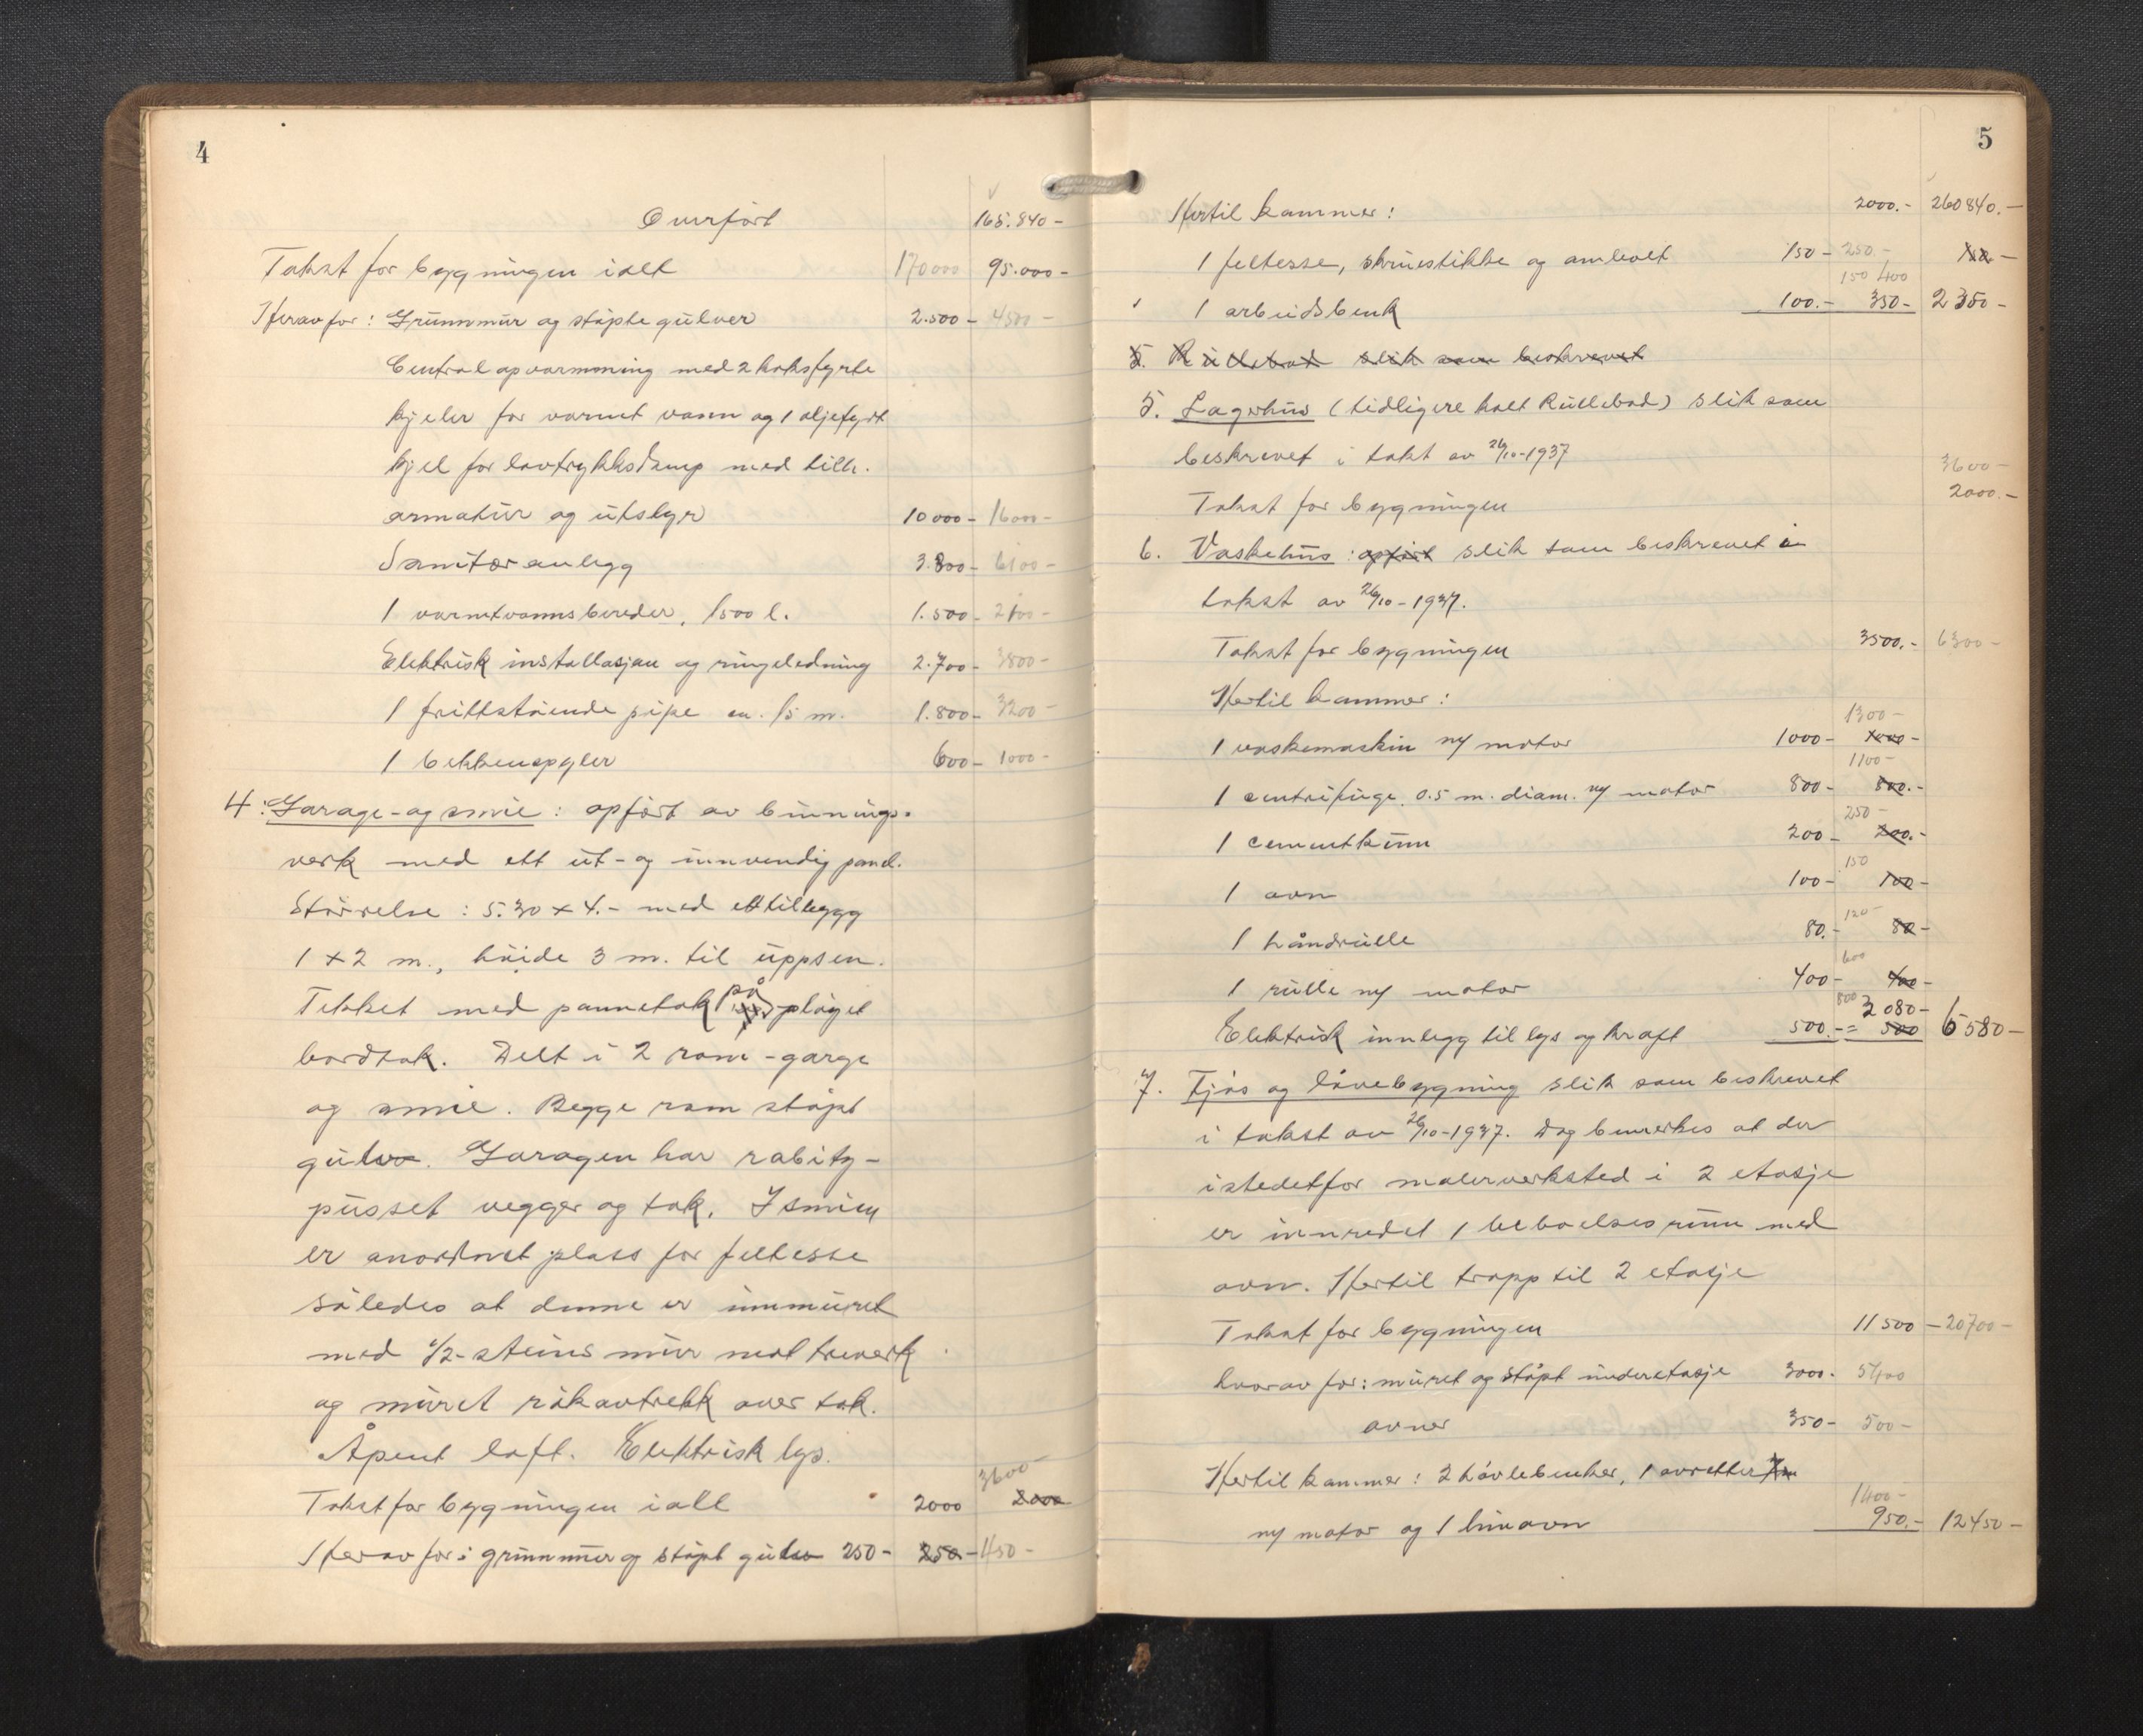 4
Overført 165.840-
Takst for bygningen ialt 170000 95.000-
Herav for: Grunnmur og støpte gulver 2.500- 4500-
Centralopvarmning med 2 koksfyrte
kjeler for varmt vann og 1 oljefyrt
kjel for lavtrykksdamp med tilh.
armatur og utstyr 10000- 16000-
Sanitæranlegg 3.800- 6100-
1 varmtvannsbereder, 1500 l. 1.500- 2100-
Elektrisk installasjon og ringeledning 2.700- 3800-
1 frittstående pipe ca. 15 m. 1.800- 3200-
1 bekkenspyler 600- 1000-
4: Garage- og smie: opført av binnings-
verk med ett ut- og innvendig panel.
Størrelse: 5.30 x 4.- med ett tillegg
1 x 2 m., høide 3 m. til uppsen.
Tekket med pannetak på pløiet
bordtak. Delt i 2 rom - garge
og smie. Begge rom støpt
gulv. Garagen har rabitz-
pusset vegger og tak. I smien
er anordnet plass for feltesse
således at denne er innmuret
med 1/2-steins mur mot treverk
og muret røkavtrekk over tak.
Åpent loft. Elektrisk lys.
3600-
Takst for bygningen ialt 2000 2000
Herav for: grunnmur og støpt gulv 250- 250- 450-
5
Hertil kommer: 2000.- 260840.-
1 feltesse, skruestikke og ambolt 150- 250-
150 400
1 arbeidsbenk 100.- 350- 2350-
5. Rullebod slik som beskrevet
5. Lagerhus (tidligere kalt Rullebod) slik som
beskrevet i takst av 26/10-1937
3600-
Takst for bygningen 2000.-
6. Vaskehus: opført slik som beskrevet i
takst av 26/10-1937.
Takst for bygningen 3500.- 6300-
Hertil kommer:
1300-
1 vaskemaskin m/ motor 1000- 1000-
1100-
1 centrifuge, 0.5 m. diam. m/ motor 800- 800.-
250-
1 cementkum 200- 200.-
150
1 ovn 100- 100-
120-
1 håndrulle 80.- 80-
600
1 rulle m/ motor 400- 400-
800 3080-
Elektrisk innlegg til lys og kraft 500.- = 500 6580-
7. Fjøs og låvebygning slik som beskrevet
i takst av 26/10-1937. Dog bemerkes at der
istedetfor malerverksted i 2 etasje
er innredet 1 beboelsesrum med
ovn. Hertil trapp til 2 etasje
Takst for bygningen 11500- 20700-
hvorav for: muret og støpt underetasje 3000- 5400
ovner 350- 500-
Hertil kommer: 2 høvlebenker, 1 avretter
1400-
m/ motor og 1 limovn 950.- 12450-